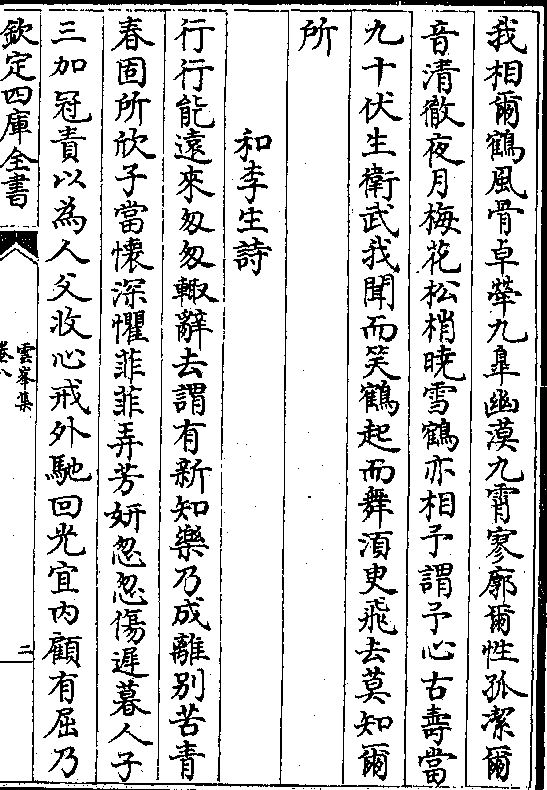 我相爾鶴風骨卓犖九臯幽漠九霄寥廓爾性孤潔爾
音清徹夜月梅花松梢曉雪鶴亦相予謂予心古壽當
九十伏生衛武我聞而笑鶴起而舞須臾飛去莫知爾
所
和李生詩
行行能遠來匆匆輙辭去謂有新知樂乃成離别苦青
春固所欣子當懷深懼菲菲弄芳妍忽忽傷遲暮人子
三加冠責以為人父收心戒外馳回光宜内顧有屈乃
欽定四庫全書
雲峯集
卷八
二